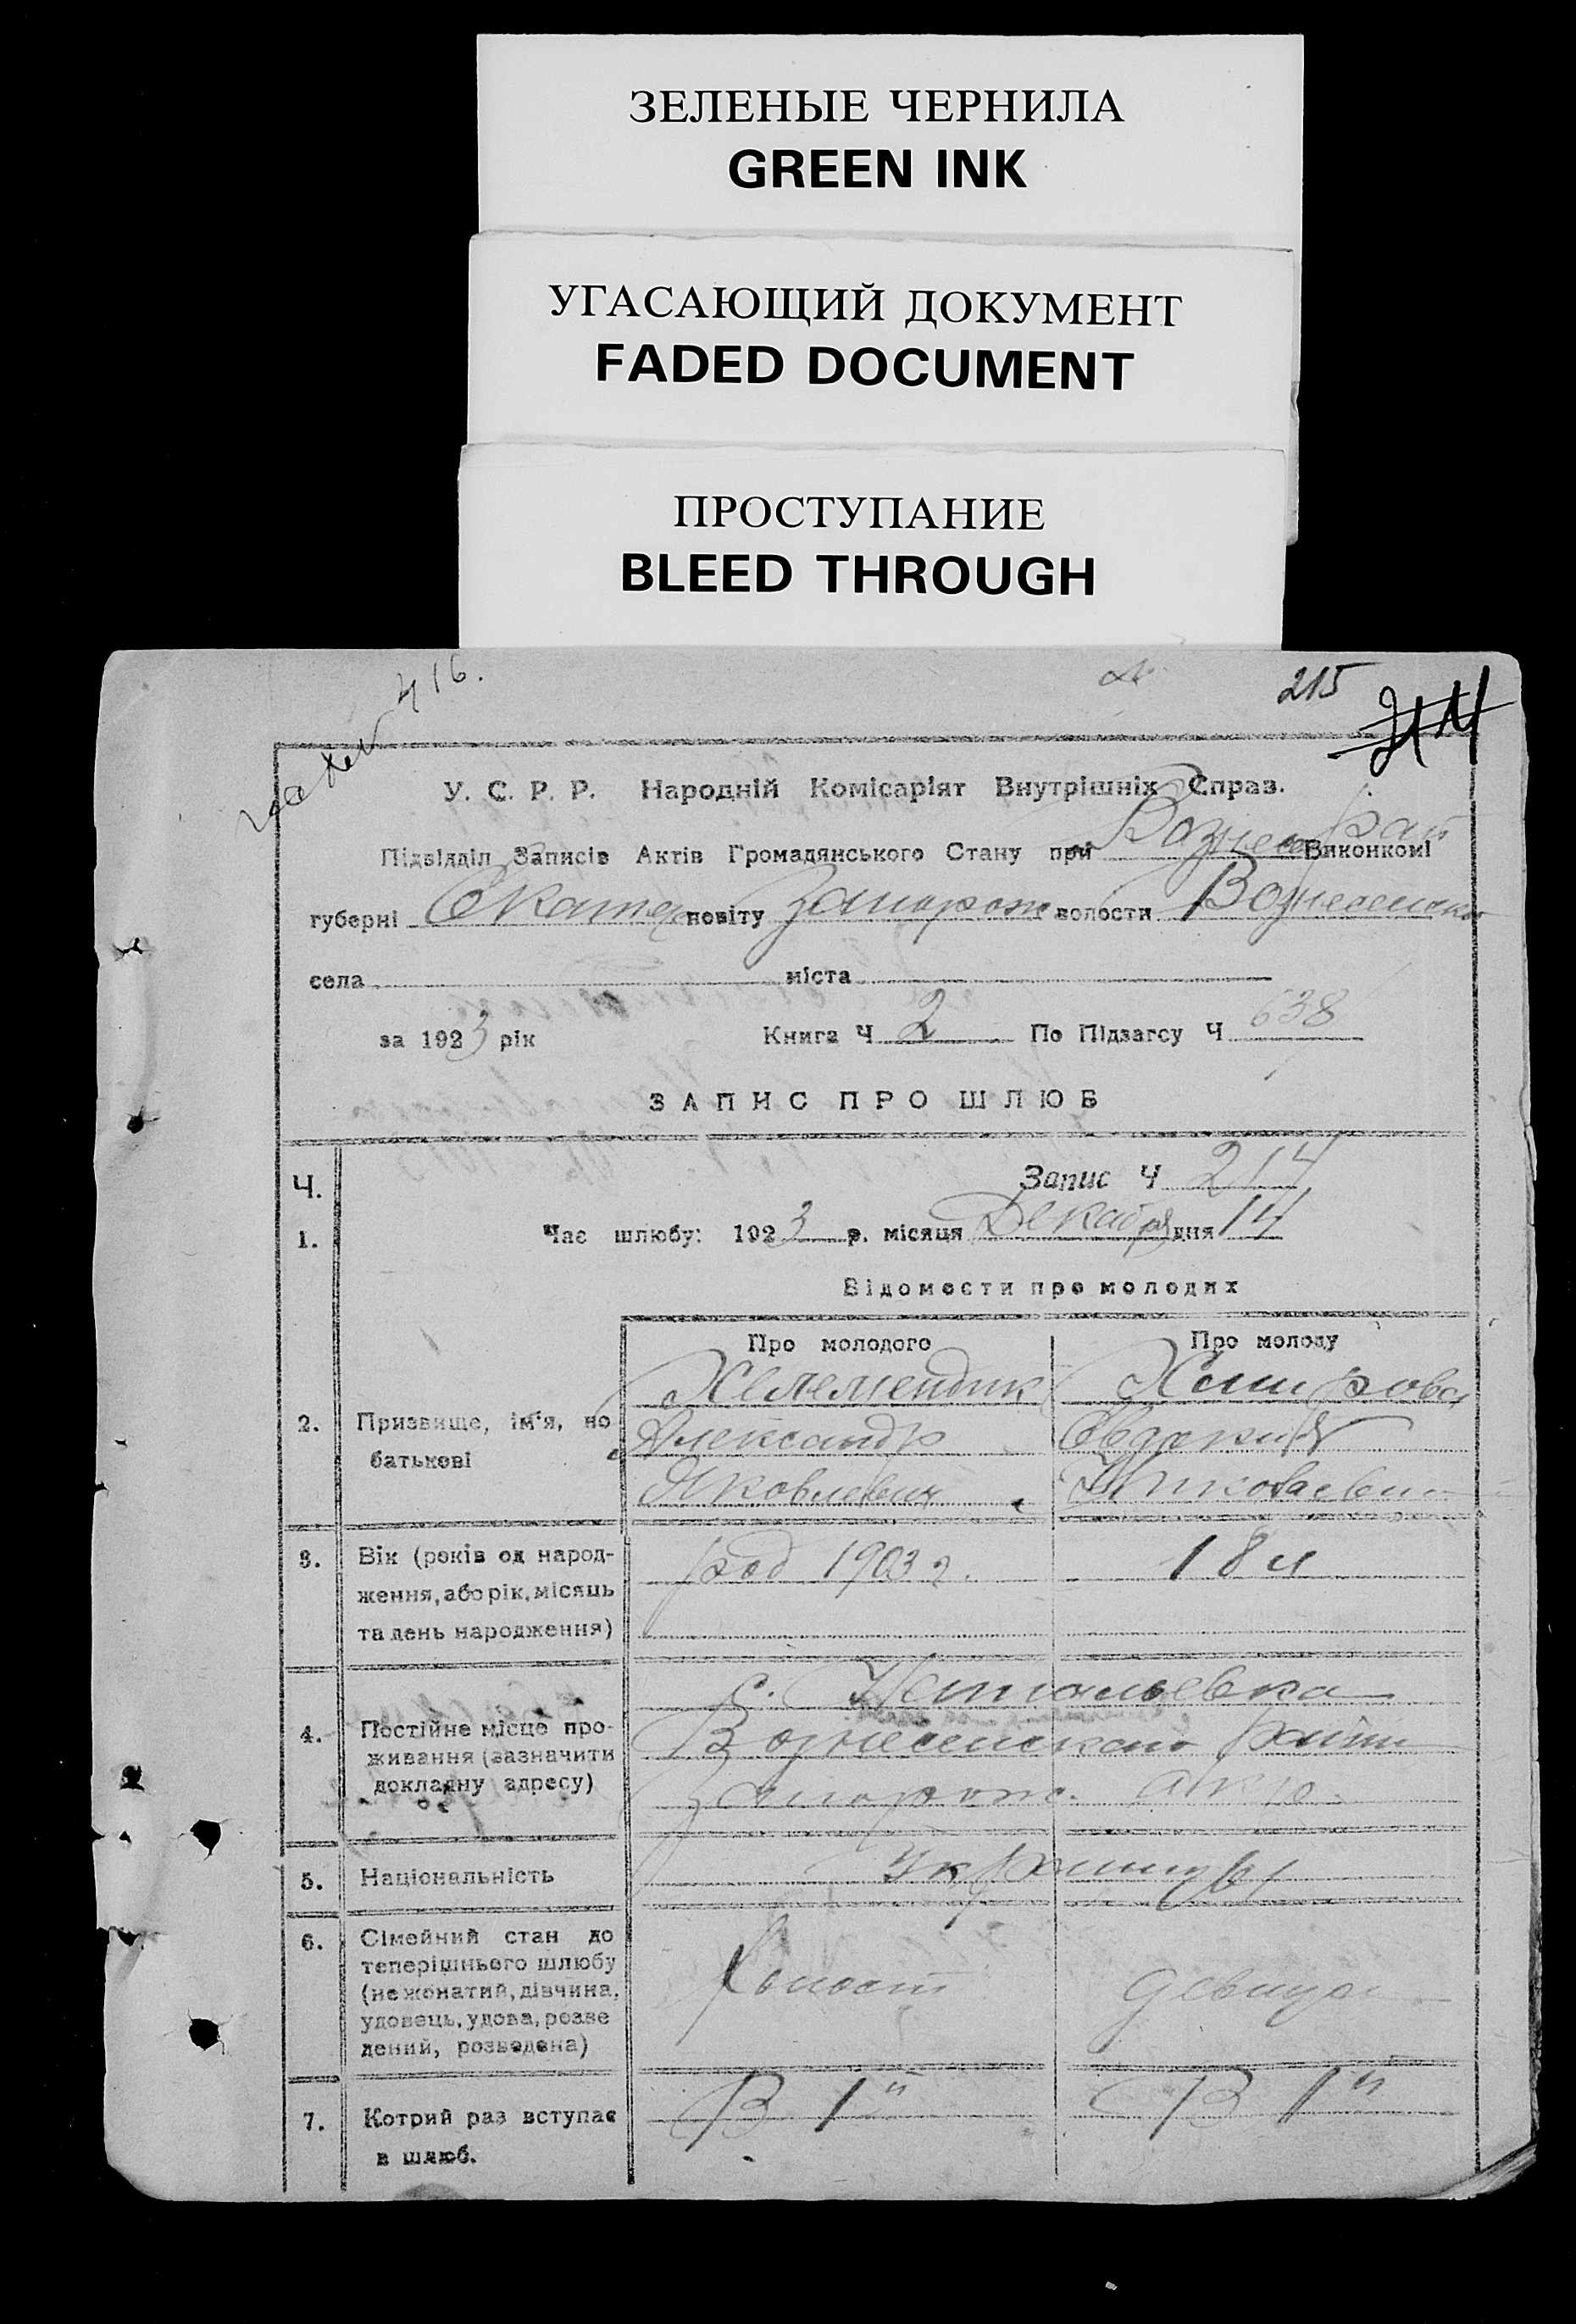 ЗЕЛЕНЫЕ ЧЕРНИЛА
GREEN INK
УГАСАЮЩИЙ ДОКУМЕНТ
FADED DOCUMENT
ПРОСТУПАНИЕ
BLEED THROUGH
416.
215
214
У. С. Р. Р. Народній Комісаріят Внутрішніх Справ.
Підвідділ Записів Актів Громадянського Стану при Вознес Рай Виконкомі
губерні Екатер повіту Запорож волости Вознесенской
села міста
за 1923 рік Книга Ч 2 По Підзагсу Ч 638
ЗАПИС ПРО ШЛЮБ
Ч. Запис Ч 214
1. Час шлюбу: 1923 р. місяця Декабря дня 14
Відомости про молодих
Про молодого Про молоду
Желемендик
2. Призвище, ім'я, по Александр Евдокия
батькові Яковлевич Николаевна
3. Вік (років од народ- род 1903 г. 18 л
ження, або рік, місяць
та день народження)
с.
4. Постійне місце про- Вознесенского района
живання (зазначити
докладну адресу) Запорож. окр.
5. Національність Украинцы
6. Сімейний стан до
теперішнього шлюбу
(не жонатий, дівчина, Холост девица
удовець, удова, розве
дений, розведена)
7. Котрий раз вступає В 1" В 1"
в шлюб.